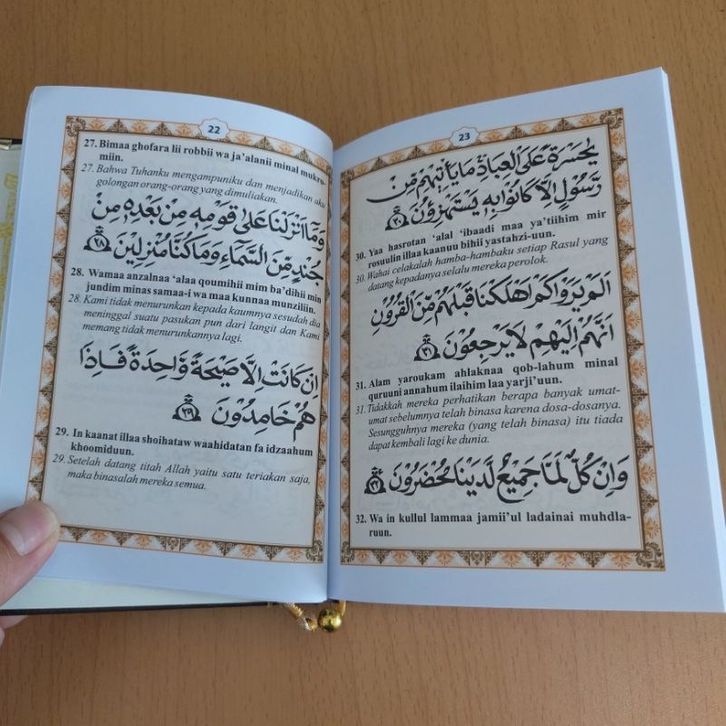 22
27. Bimaa ghofara lii robbii wa ja'alanii minal mukro-
miin.
27. Bahwa Tuhanku mengampuniku dan menjadikan aku
golongan orang-orang yang dimuliakan.
وَمَا اَنْزَلْنَا عَلٰى قَوْمِهٖ مِنْ بَعْدِهٖ مِنْ
جُنْدٍ مِّنَ السَّمَاءِ وَمَا كُنَّا مُنْزِلِيْنَ ٢٨
28. Wamaa anzalnaa 'alaa qoumihii mim ba'dihii min
jundim minas samaa-i wa maa kunnaa munziliin.
28. Kami tidak menurunkan kepada kaumnya sesudah dia
meninggal suatu pasukan pun dari langit dan Kami
memang tidak menurunkannya lagi.
اِنْ كَانَتْ اِلَّا صَيْحَةً وَّاحِدَةً فَاِذَا
هُمْ خَامِدُوْنَ ٢٩
29. In kaanat illaa shoihataw waahidatan fa idzaahum
khoomiduun.
29. Setelah datang titah Allah yaitu satu teriakan saja,
maka binasalah mereka semua.
23
يٰحَسْرَةً عَلَى الْعِبَادِ مَا يَأْتِيْهِمْ مِّنْ
رَّسُوْلٍ اِلَّا كَانُوْا بِهٖ يَسْتَهْزِءُوْنَ ٣٠
30. Yaa hasrotan 'alal 'ibaadi maa ya'tiihim mir
rosuulin illaa kaanuu bihii yastahzi-uun.
30. Wahai celakalah hamba-hambaku setiap Rasul yang
datang kepadanya selalu mereka perolok.
اَلَمْ يَرَوْا كَمْ اَهْلَكْنَا قَبْلَهُمْ مِّنَ الْقُرُوْنِ
اَنَّهُمْ اِلَيْهِمْ لَا يَرْجِعُوْنَ ٣١
31. Alam yaroukam ahlaknaa qob-lahum minal
quruuni annahum ilaihim laa yarji'uun.
31. Tidakkah mereka perhatikan berapa banyak umat-
umat sebelumnya telah binasa karena dosa-dosanya.
Sesungguhnya mereka (yang telah binasa) itu tiada
dapat kembali lagi ke dunia.
وَاِنْ كُلٌّ لَّمَّا جَمِيْعٌ لَّدَيْنَا مُحْضَرُوْنَ ٣٢
32. Wa in kullul lammaa jamii'ul ladainai muhdla-
ruun.